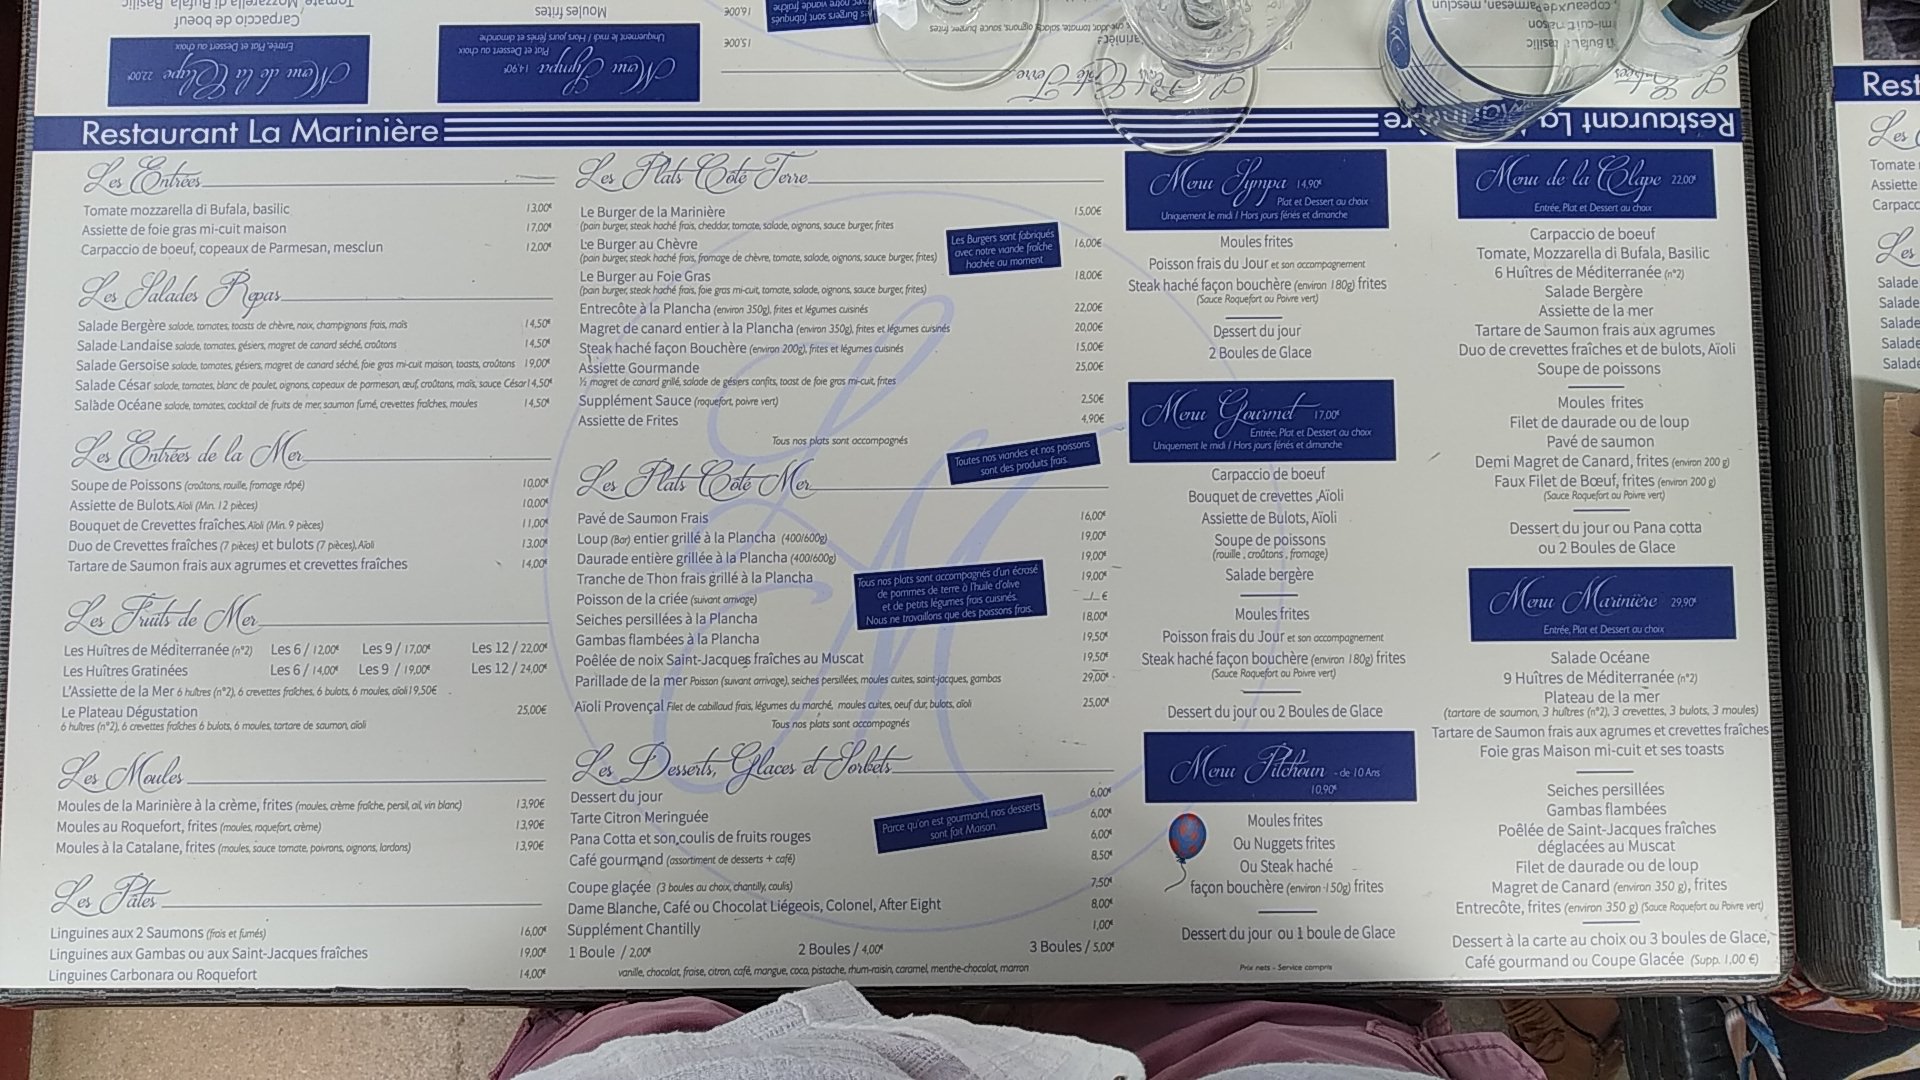 Restaurant La Marinière
Les Entrées
Tomate mozzarella di Bufala, basilic 13,00€
Assiette de foie gras mi-cuit maison 17,00€
Carpaccio de boeuf, copeaux de Parmesan, mesclun 12,00€
Les Salades Repas
Salade Bergère salade, tomates, toasts de chèvre, noix, champignons frais, maïs 14,50€
Salade Landaise salade, tomates, gésiers, magret de canard séché, croûtons 14,50€
Salade Gersoise salade, tomates, gésiers, magret de canard séché, foie gras mi-cuit maison, toasts, croûtons 19,00€
Salade César salade, tomates, blanc de poulet, oignons, copeaux de parmesan, œuf, croûtons, maïs, sauce César 14,50€
Salade Océane salade, tomates, cocktail de fruits de mer, saumon fumé, crevettes fraîches, moules 14,50€
Les Entrées de la Mer
Soupe de Poissons (croûtons, rouille, fromage râpé) 10,00€
Assiette de Bulots, Aïoli (Min. 12 pièces) 10,00€
Bouquet de Crevettes fraîches, Aïoli (Min. 9 pièces) 11,00€
Duo de Crevettes fraîches (7 pièces) et bulots (7 pièces), Aïoli 13,00€
Tartare de Saumon frais aux agrumes et crevettes fraîches 14,00€
Les Fruits de Mer
Les Huîtres de Méditerranée (n°2) Les 6 / 12,00€ Les 9 / 17,00€ Les 12 / 22,00€
Les Huîtres Gratinées Les 6 / 14,00€ Les 9 / 19,00€ Les 12 / 24,00€
L'Assiette de la Mer 6 huîtres (n°2), 6 crevettes fraîches, 6 bulots, 6 moules, aïoli 19,50€
Le Plateau Dégustation 25,00€
6 huîtres (n°2), 6 crevettes fraîches 6 bulots, 6 moules, tartare de saumon, aïoli
Les Moules
Moules de la Marinière à la crème, frites (moules, crème fraîche, persil, ail, vin blanc) 13,90€
Moules au Roquefort, frites (moules, roquefort, crème) 13,90€
Moules à la Catalane, frites (moules, sauce tomate, poivrons, oignons, lardons) 13,90€
Les Pâtes
Linguines aux 2 Saumons (frais et fumés) 16,00€
Linguines aux Gambas ou aux Saint-Jacques fraîches 19,00€
Linguines Carbonara ou Roquefort 14,00€
Les Plats Côté Terre
Le Burger de la Marinière 15,00€
(pain burger, steak haché frais, cheddar, tomate, salade, oignons, sauce burger, frites
Le Burger au Chèvre 16,00€
(pain burger, steak haché frais, fromage de chèvre, tomate, salade, oignons, sauce burger, frites)
Le Burger au Foie Gras 18,00€
(pain burger, steak haché frais, foie gras mi-cuit, tomate, salade, oignons, sauce burger, frites)
Les Burgers sont fabriqués
avec notre viande fraîche
hachée au moment
Entrecôte à la Plancha (environ 350g), frites et légumes cuisinés 22,00€
Magret de canard entier à la Plancha (environ 350g), frites et légumes cuisinés 20,00€
Steak haché façon Bouchère (environ 200g), frites et légumes cuisinés 15,00€
Assiette Gourmande 25,00€
½ magret de canard grillé, salade de gésiers confits, toast de foie gras mi-cuit, frites
Supplément Sauce (roquefort, poivre vert) 2,50€
Assiette de Frites 4,90€
Tous nos plats sont accompagnés
Toutes nos viandes et nos poissons
sont des produits frais.
Les Plats Côté Mer
Pavé de Saumon Frais 16,00€
Loup (Bar) entier grillé à la Plancha (400/600g) 19,00€
Daurade entière grillée à la Plancha (400/600g) 19,00€
Tranche de Thon frais grillé à la Plancha 19,00€
Poisson de la criée (suivant arrivage) _/_ €
Seiches persillées à la Plancha 18,00€
Gambas flambées à la Plancha 19,50€
Tous nos plats sont accompagnés d'un écrasé
de pommes de terre à l'huile d'olive
et de petits légumes frais cuisinés.
Nous ne travaillons que des poissons frais.
Poêlée de noix Saint-Jacques fraîches au Muscat 19,50€
Parillade de la mer Poisson (suivant arrivage), seiches persillées, moules cuites, saint-jacques, gambas 29,00€
Aïoli Provençal Filet de cabillaud frais, légumes du marché, moules cuites, oeuf dur, bulots, aïoli 25,00€
Tous nos plats sont accompagnés
Les Desserts, Glaces et Sorbets
Dessert du jour 6,00€
Tarte Citron Meringuée 6,00€
Pana Cotta et son coulis de fruits rouges 6,00€
Café gourmand (assortiment de desserts + café) 8,50€
Parce qu'on est gourmand, nos desserts
sont fait Maison.
Coupe glaçée (3 boules au choix, chantilly, coulis) 7,50€
Dame Blanche, Café ou Chocolat Liégeois, Colonel, After Eight 8,00€
Supplément Chantilly 1,00€
1 Boule / 2,00€ 2 Boules / 4,00€ 3 Boules / 5,00€
vanille, chocolat, fraise, citron, café, mangue, coco, pistache, rhum-raisin, caramel, menthe-chocolat, marron
Menu Sympa 14,90€
Plat et Dessert au choix
Uniquement le midi / Hors jours fériés et dimanche
Moules frites
Poisson frais du Jour et son accompagnement
Steak haché façon bouchère (environ 180g) frites
(Sauce Roquefort ou Poivre vert)
Dessert du jour
2 Boules de Glace
Menu Gourmet 17,00€
Entrée, Plat et Dessert au choix
Uniquement le midi / Hors jours fériés et dimanche
Carpaccio de boeuf
Bouquet de crevettes ,Aïoli
Assiette de Bulots, Aïoli
Soupe de poissons
(rouille , croûtons , fromage)
Salade bergère
Moules frites
Poisson frais du Jour et son accompagnement
Steak haché façon bouchère (environ 180g) frites
(Sauce Roquefort ou Poivre vert)
Dessert du jour ou 2 Boules de Glace
Menu Pitchoun - de 10 Ans
10,90€
Moules frites
Ou Nuggets frites
Ou Steak haché
façon bouchère (environ 150g) frites
Dessert du jour ou 1 boule de Glace
Prix nets - Service compris
Menu de la Clape 22,00€
Entrée, Plat et Dessert au choix
Carpaccio de boeuf
Tomate, Mozzarella di Bufala, Basilic
6 Huîtres de Méditerranée (n°2)
Salade Bergère
Assiette de la mer
Tartare de Saumon frais aux agrumes
Duo de crevettes fraîches et de bulots, Aïoli
Soupe de poissons
Moules frites
Filet de daurade ou de loup
Pavé de saumon
Demi Magret de Canard, frites (environ 200 g)
Faux Filet de Bœuf, frites (environ 200 g)
(Sauce Roquefort ou Poivre vert)
Dessert du jour ou Pana cotta
ou 2 Boules de Glace
Menu Marinière 29,90€
Entrée, Plat et Dessert au choix
Salade Océane
9 Huîtres de Méditerranée (n°2)
Plateau de la mer
(tartare de saumon, 3 huîtres (n°2), 3 crevettes, 3 bulots, 3 moules)
Tartare de Saumon frais aux agrumes et crevettes fraîches
Foie gras Maison mi-cuit et ses toasts
Seiches persillées
Gambas flambées
Poêlée de Saint-Jacques fraîches
déglacées au Muscat
Filet de daurade ou de loup
Magret de Canard (environ 350 g), frites
Entrecôte, frites (environ 350 g) (Sauce Roquefort ou Poivre vert)
Dessert à la carte au choix ou 3 boules de Glace,
Café gourmand ou Coupe Glacée (Supp. 1,00 €)
Restaurant La
Menu de la Clape 22,00€
Entrée, Plat et Dessert au choix
Carpaccio de boeuf
Menu Sympa 14,90€
Plat et Dessert au choix
Uniquement le midi / Hors jours fériés et dimanche
Moules frites
15,00€
16,00€
Les Burgers sont fabriqués
Rest
Les
Tomate
Assiette
Carpacc
Les
Salade
Salade
Salade
Salade
Salade